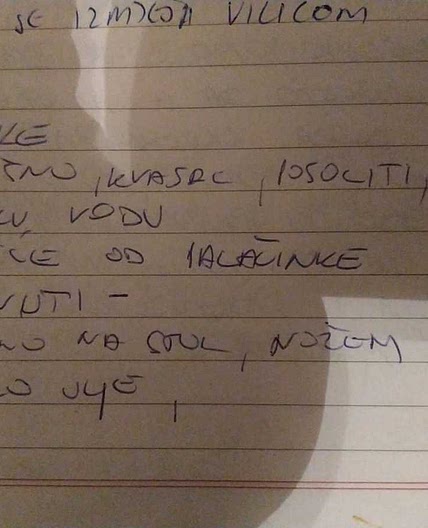 SE IZMJEŠA VILICOM
KE
ŠNO, KVASAC, POSOLITI,
KU, VODU
ĆE OD PALAČINKE
NUTI -
NO NA STOL, NOŽEM
LO ULJE,